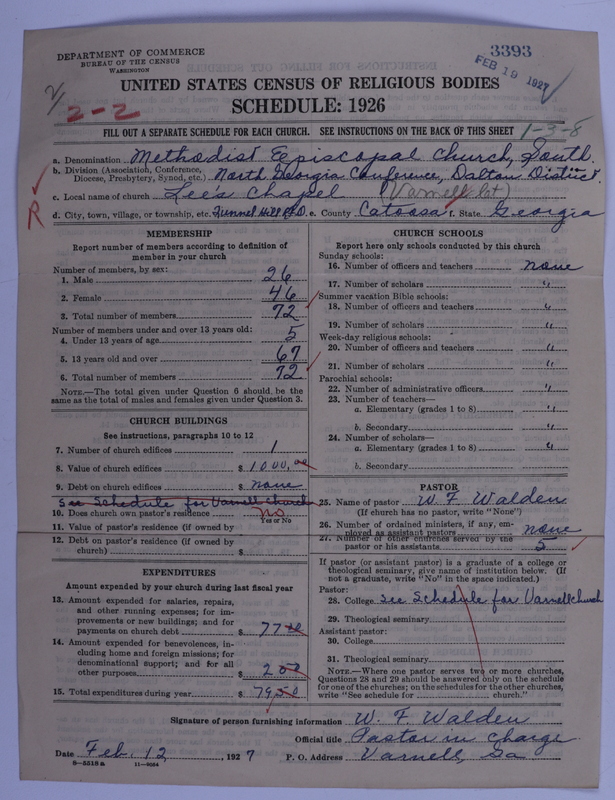 DEPARTMENT OF COMMERCE
BUREAU OF THE CENSUS
WASHINGTON
3393
FEB 19 1927
2-2
UNITED STATES CENSUS OF RELIGIOUS BODIES
SCHEDULE: 1926
FILL OUT A SEPARATE SCHEDULE FOR EACH CHURCH. SEE INSTRUCTIONS ON THE BACK OF THIS SHEET
1-3-8
a. Denomination Methodist Episcopal Church, South.
b. Division (Association, Conference, Diocese, Presbytery, Synod, etc.) North Georgia Conference, Dalton District.
c. Local name of church Lee's Chapel (Varnell kt)
R
d. City, town, village, or township, etc. Tunnel Hill R.D. e. County Catoosa f. State Georgia
MEMBERSHIP
Report number of members according to definition of
member in your church
Number of members, by sex:
1. Male 26
2. Female 46
3. Total number of members 72
Number of members under and over 13 years old:
4. Under 13 years of age 5
5. 13 years old and over 67
6. Total number of members 72
NOTE.—The total given under Question 6 should be the
same as the total of males and females given under Question 3.
CHURCH BUILDINGS
See instructions, paragraphs 10 to 12
7. Number of church edifices 1
8. Value of church edifices $ 1000.00
9. Debt on church edifices $ none
See Schedule for Varnell Church
10. Does church own pastor's residence No
Yes or No
11. Value of pastor's residence (if owned by
12. Debt on pastor's residence (if owned by
church) $
EXPENDITURES
Amount expended by your church during last fiscal year
13. Amount expended for salaries, repairs,
and other running expenses; for im-
provements or new buildings; and for
payments on church debt $ 77
14. Amount expended for benevolences, in-
cluding home and foreign missions; for
denominational support; and for all
other purposes $ 2
15. Total expenditures during year $ 79
CHURCH SCHOOLS
Report here only schools conducted by this church
Sunday schools:
16. Number of officers and teachers none
17. Number of scholars "
Summer vacation Bible schools:
18. Number of officers and teachers "
19. Number of scholars "
Week-day religious schools:
20. Number of officers and teachers "
21. Number of scholars "
Parochial schools:
22. Number of administrative officers "
23. Number of teachers—
a. Elementary (grades 1 to 8) "
b. Secondary "
24. Number of scholars—
a. Elementary (grades 1 to 8) "
b. Secondary
PASTOR
25. Name of pastor W. F. Walden
(If church has no pastor, write "None")
26. Number of ordained ministers, if any, em-
ployed as assistant pastors none
27. Number of other churches served by the
pastor or his assistants 5
If pastor (or assistant pastor) is a graduate of a college or
theological seminary, give name of institution below. (If
not a graduate, write "No" in the space indicated.)
Pastor:
28. College See Schedule for Varnell Church
29. Theological seminary
Assistant pastor:
30. College
31. Theological seminary
NOTE.—Where one pastor serves two or more churches,
Questions 28 and 29 should be answered only on the schedule
for one of the churches; on the schedules for the other churches,
write "See schedule for church."
Signature of person furnishing information W. F. Walden
Official title Pastor in Charge
Date Feb. 12, 1927 P. O. Address Varnell, Ga
8-5318a 11-9034